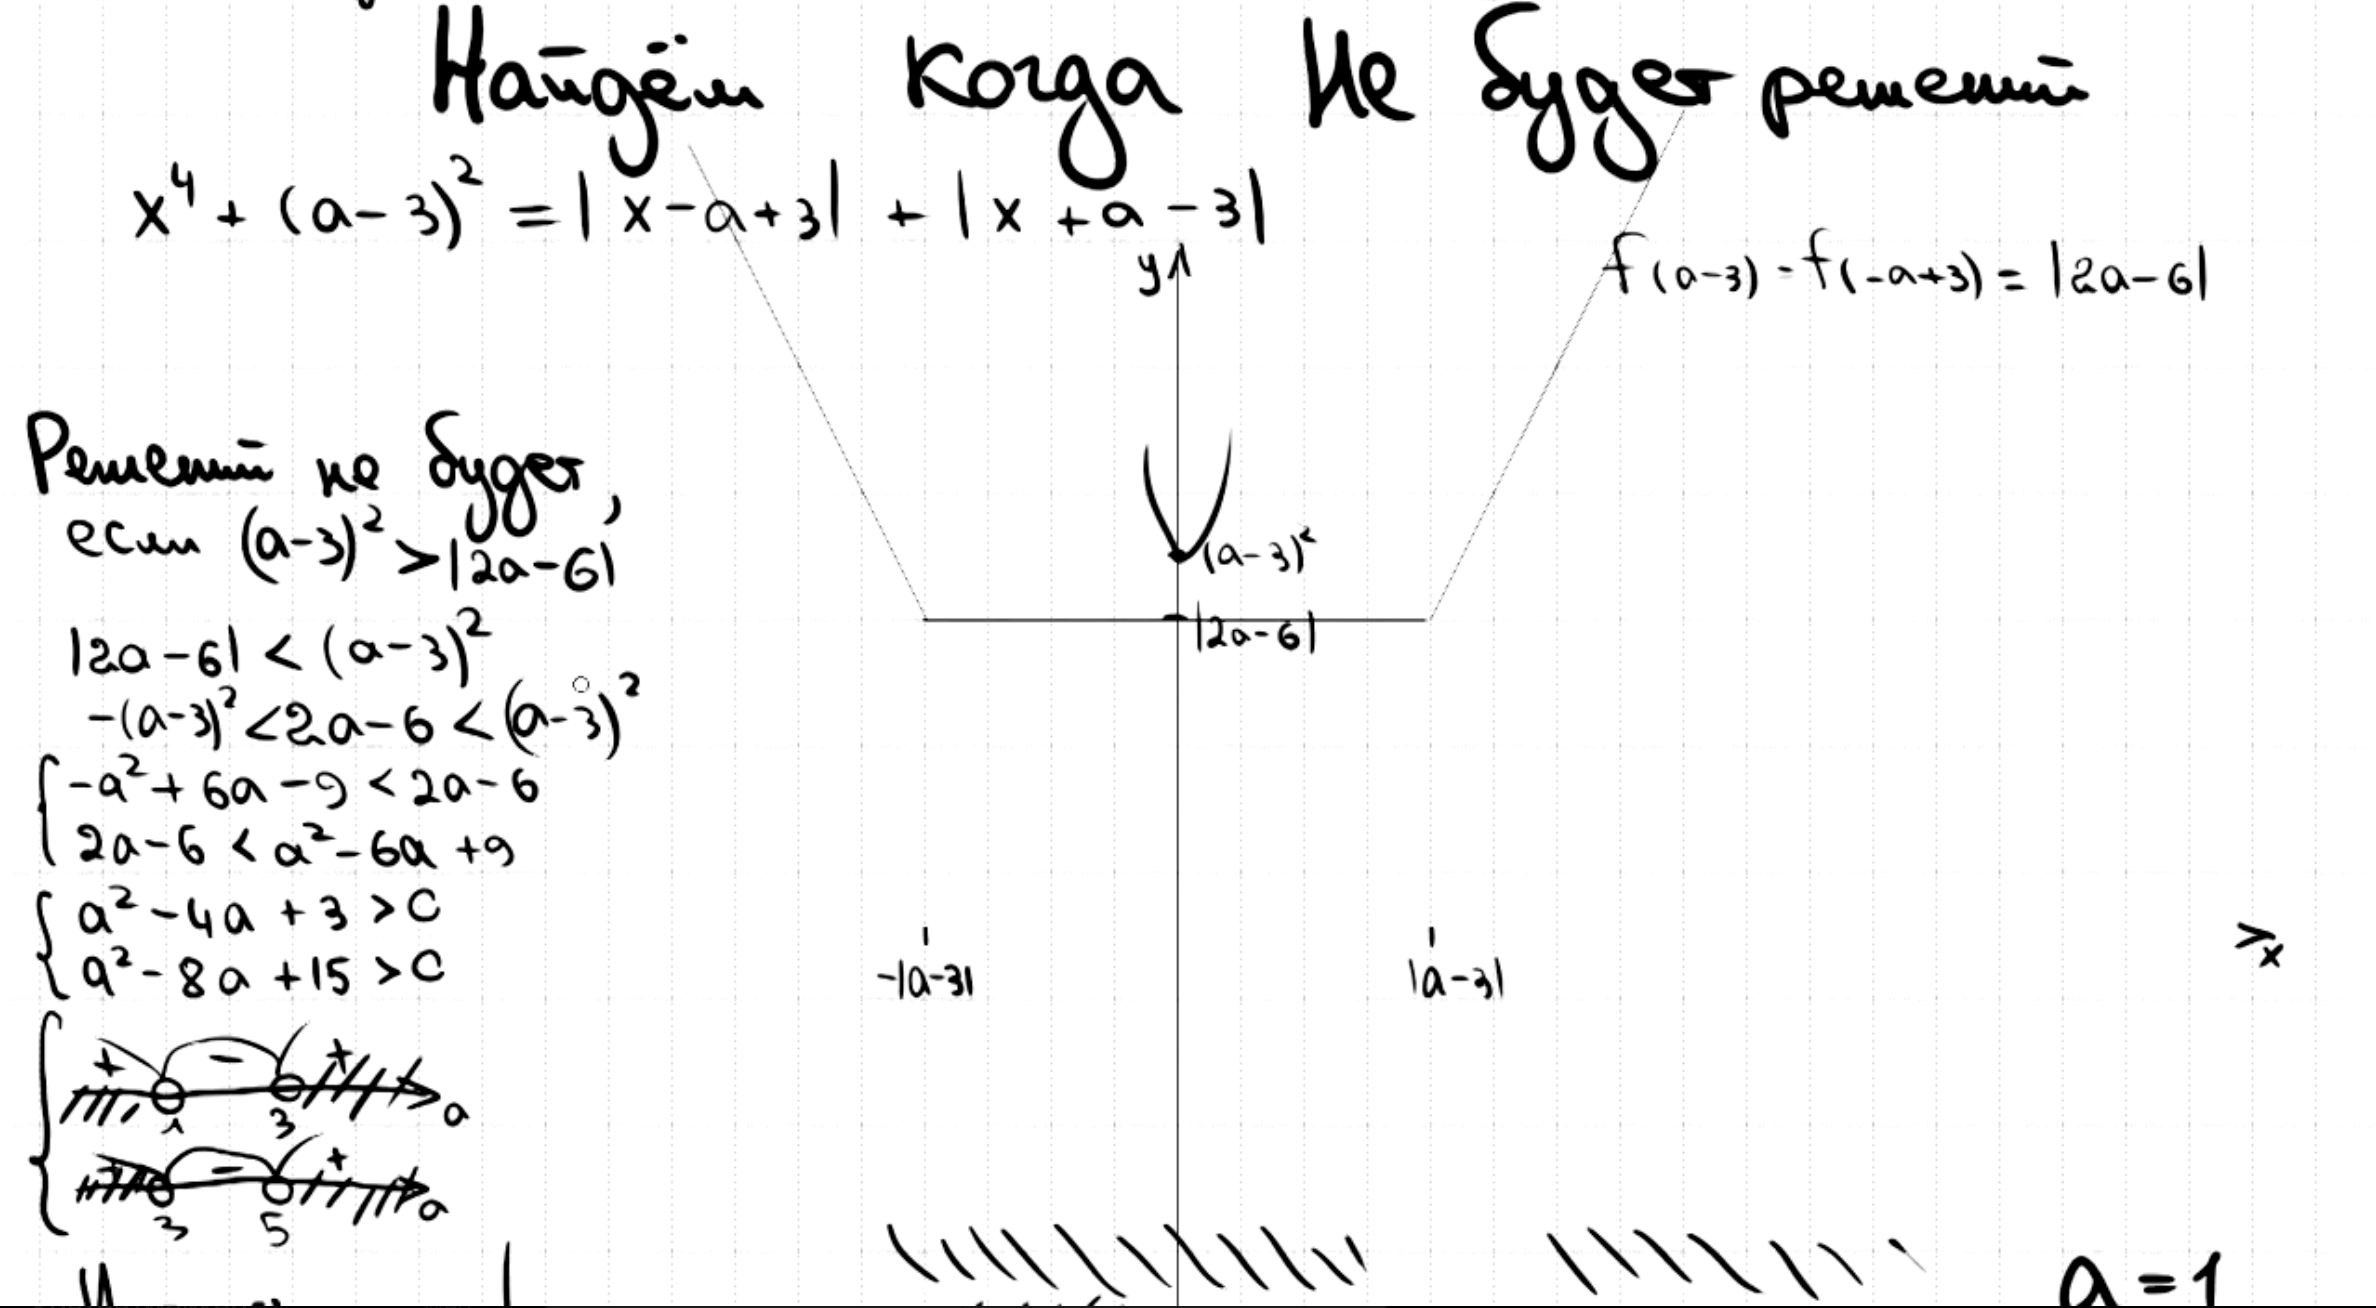 Найдём когда не будет решений
x⁴ + (a-3)² = |x-a+3| + |x+a-3|
y
f(a-3) = f(-a+3) = |2a-6|
Решений не будет,
если (a-3)² > |2a-6|
(a-3)²
|2a-6|
|2a-6| < (a-3)²
-(a-3)² < 2a-6 < (a-3)²
-a² + 6a - 9 < 2a-6
2a-6 < a² - 6a + 9
a² - 4a + 3 > 0
a² - 8a + 15 > 0
-|a-3|
|a-3|
x
+ - +
1 3 a
- +
3 5 a
a = 1